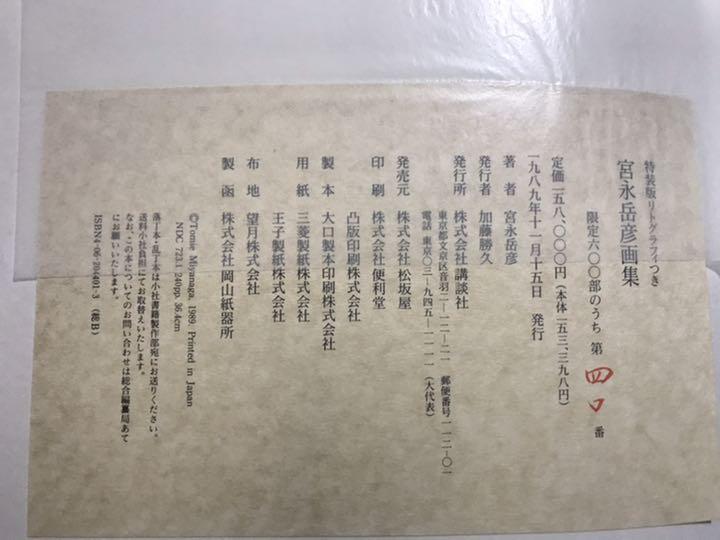 特装版リトグラフィつき
宮永岳彦画集
限定六〇〇部のうち 第 四〇 番
定価一五八、〇〇〇円（本体一五三、三九八円）
一九八九年十一月十五日 発行
著者 宮永岳彦
発行者 加藤勝久
発行所 株式会社 講談社
東京都文京区音羽二―一二―二一 郵便番号一一二―〇一
電話 東京〇三―九四五―一一一一（大代表）
発売元 株式会社 松坂屋
印刷 株式会社 便利堂
凸版印刷株式会社
製本 大口製本印刷株式会社
用紙 三菱製紙株式会社
王子製紙株式会社
布地 望月株式会社
製函 株式会社 岡山紙器所
©Tomie Miyanaga, 1989 Printed in Japan
NDC 723.1 240pp. 36.4cm
落丁本・乱丁本は小社書籍製作部宛にお送りください。
送料小社負担にてお取替えいたします。
なお、この本についてのお問い合わせは総合編纂局あて
にお願いいたします。
ISBN4-06-204401-3 (総B)